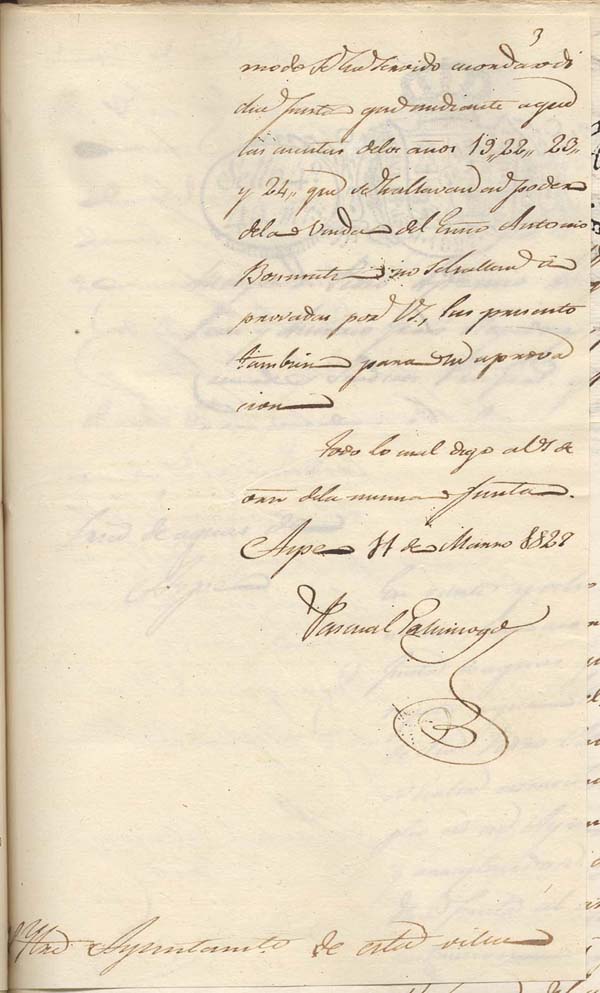 3
mo de se ha servido acordar di
cha Junta que mediante a que
las cuentas de los años 19,, 22,, 23,,
y 24,, que se hallavan en poder
dela Viuda del Escno Antonio
no se hallan a
provadas por VS, las presente
tambien para su aprova
cion
Todo lo cual digo a VS de
orn dela misma Junta.
Aspe 11 de Marzo 1827
Pascual
Ayuntamto. de esta villa